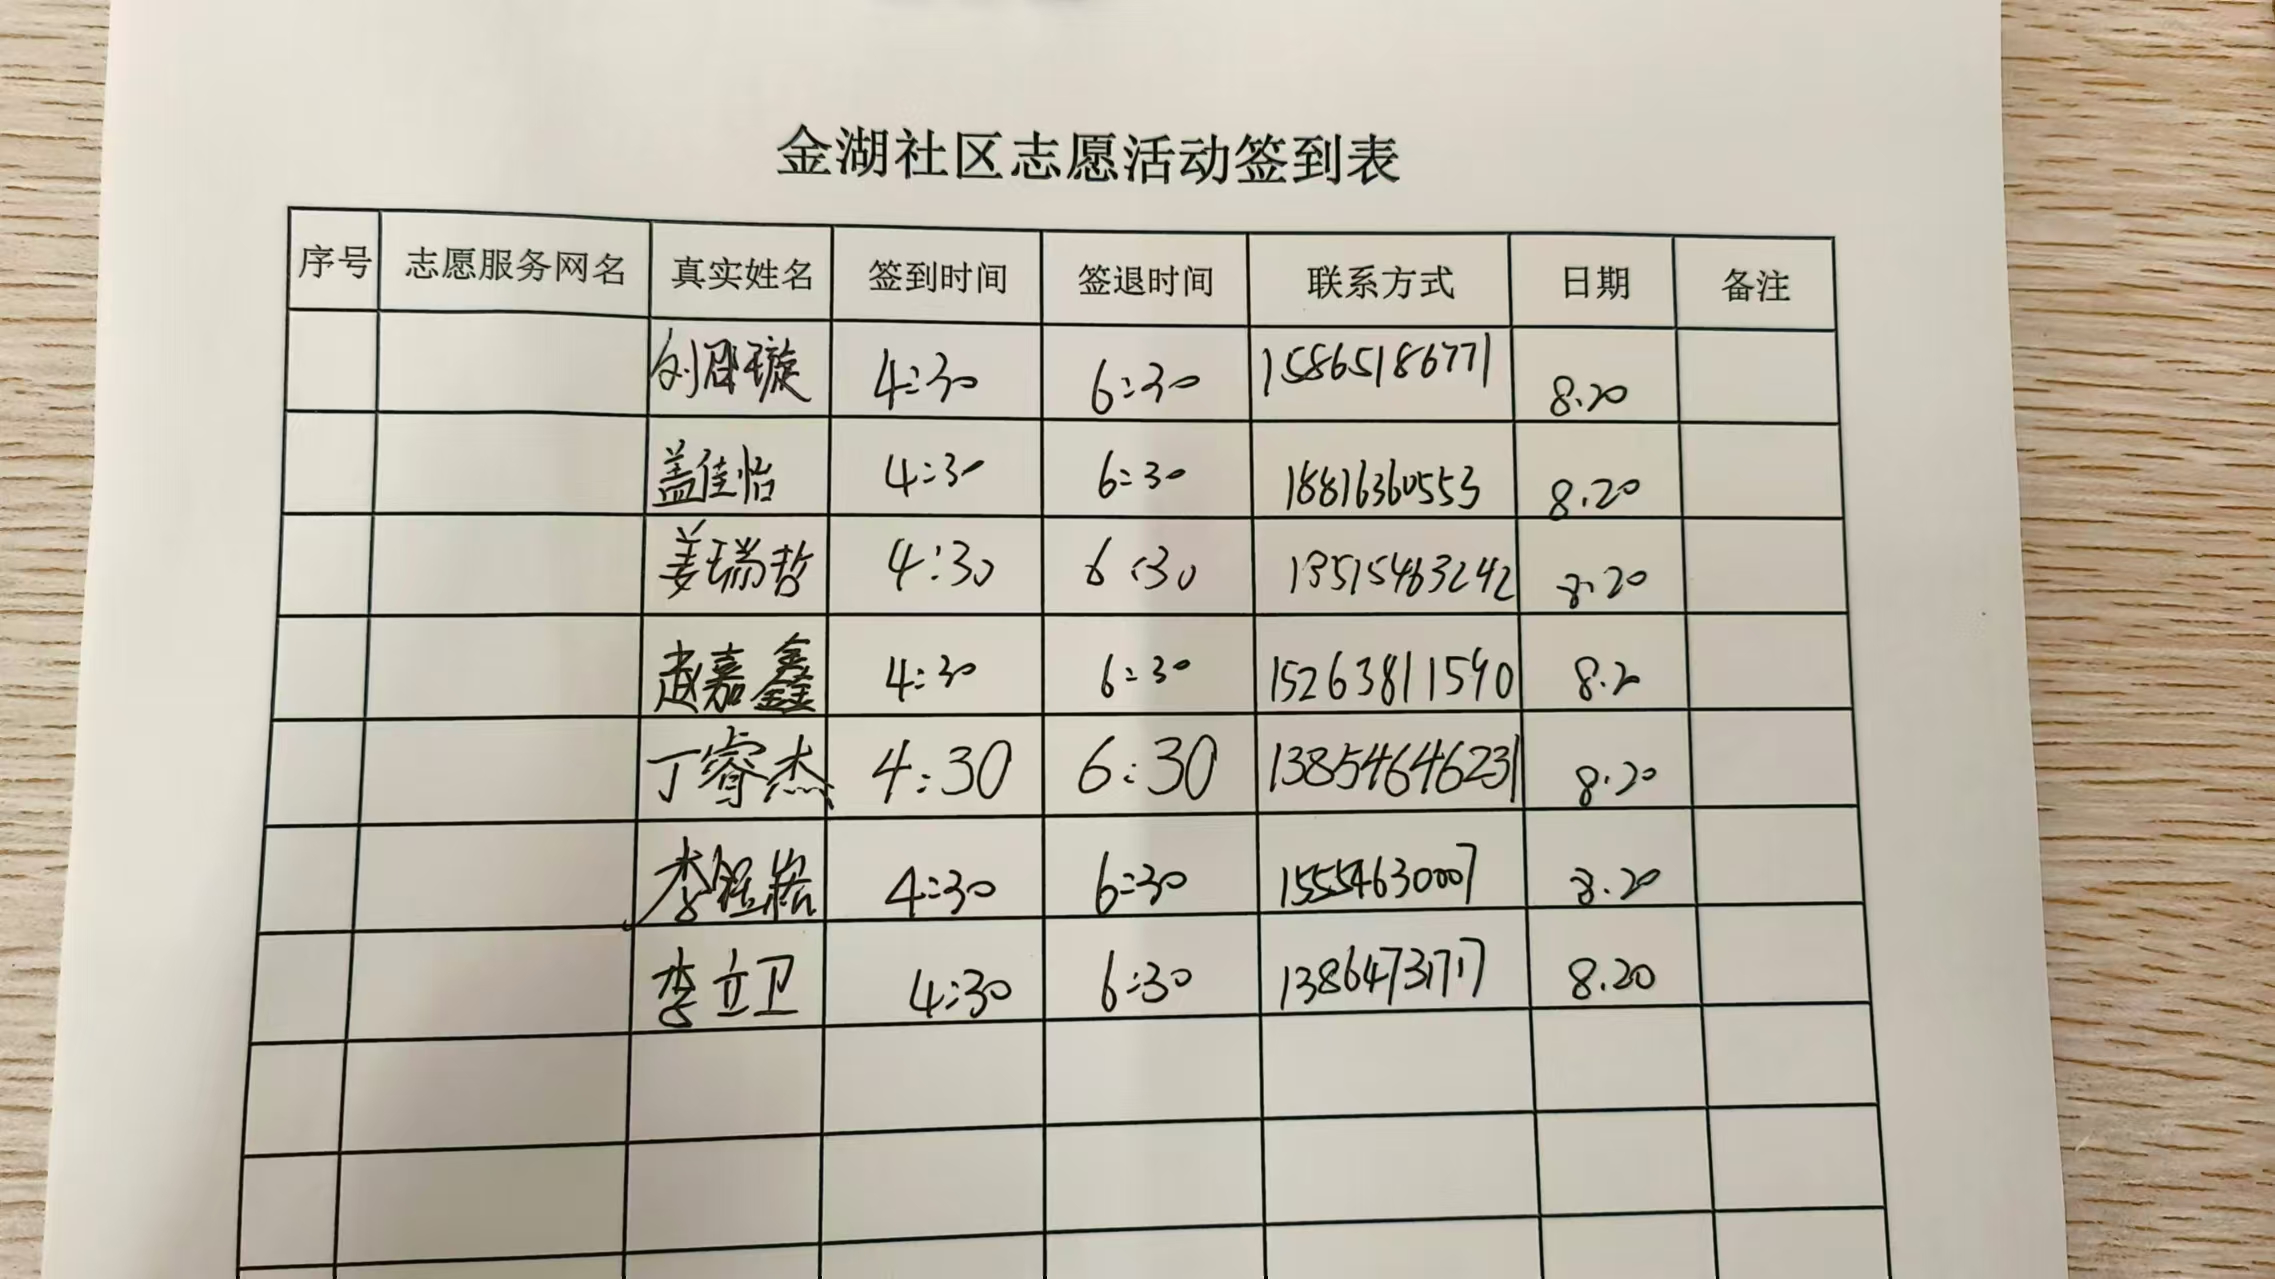 金湖社区志愿活动签到表
序号 志愿服务网名 真实姓名 签到时间 签退时间 联系方式 日期 备注
刘 璇 4:30 6:30 15865186771 8.20
盖佳怡 4:30 6:30 18816360553 8.20
姜瑞哲 4:30 6:30 13515463242 8.20
赵嘉鑫 4:30 6:30 15263811590 8.20
丁睿杰 4:30 6:30 13854646231 8.20
李 4:30 6:30 15554630007 8.20
李立卫 4:30 6:30 13864731717 8.20